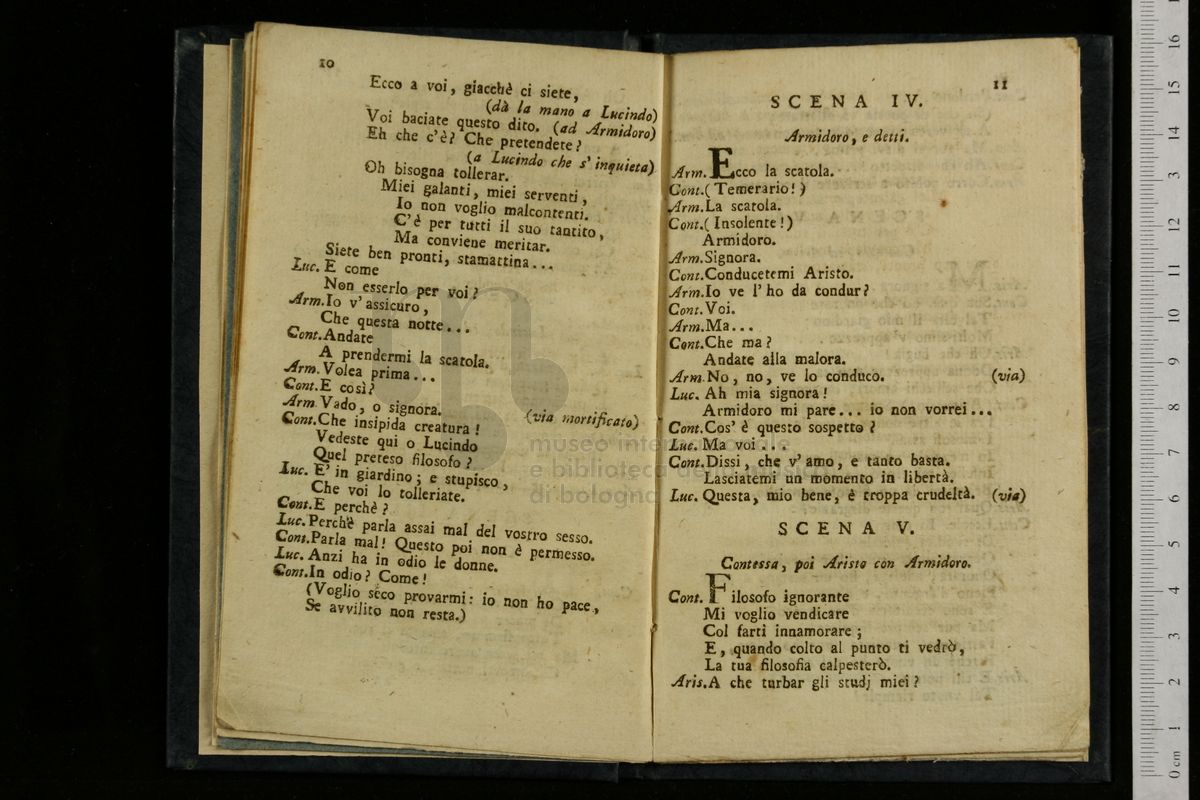 10
Ecco a voi, giacchè ci siete,
(dà la mano a Lucindo)
Voi baciate questo dito. (ad Armidoro)
Eh che c'è? Che pretendete?
(a Lucindo che s'inquieta)
Oh bisogna tollerar.
Miei galanti, miei serventi,
Io non voglio malcontenti.
C'è per tutti il suo tantito,
Ma conviene meritar.
Siete ben pronti, stamattina...
Luc. E come
Non esserlo per voi?
Arm. Io v'assicuro,
Che questa notte...
Cont. Andate
A prendermi la scatola.
Arm. Volea prima...
Cont. E così?
Arm. Vado, o signora. (via mortificato)
Cont. Che insipida creatura!
Vedeste qui o Lucindo
Quel preteso filosofo?
Luc. E' in giardino; e stupisco,
Che voi lo tolleriate.
Cont. E perchè?
Luc. Perchè parla assai mal del vostro sesso.
Cont. Parla mal! Questo poi non è permesso.
Luc. Anzi ha in odio le donne.
Cont. In odio? Come!
(Voglio seco provarmi: io non ho pace,
Se avvilito non resta.)
11
SCENA IV.
Armidoro, e detti.
Arm. Ecco la scatola.
Cont. (Temerario!)
Arm. La scatola.
Cont. (Insolente!)
Armidoro.
Arm. Signora.
Cont. Conducetemi Aristo.
Arm. Io ve l'ho da condur?
Cont. Voi.
Arm. Ma...
Cont. Che ma?
Andate alla malora.
Arm. No, no, ve lo conduco. (via)
Luc. Ah mia signora!
Armidoro mi pare... io non vorrei...
Cont. Cos'è questo sospetto?
Luc. Ma voi...
Cont. Dissi, che v'amo, e tanto basta.
Lasciatemi un momento in libertà.
Luc. Questa, mio bene, è troppa crudeltà. (via)
SCENA V.
Contessa, poi Aristo con Armidoro.
Cont. Filosofo ignorante
Mi voglio vendicare
Col farti innamorare;
E, quando colto al punto ti vedrò,
La tua filosofia calpesterò.
Aris. A che turbar gli studj miei?
museo internazionale
e biblioteca della musica
di bologna
0 cm 1 2 3 4 5 6 7 8 9 10 11 12 13 14 15 16